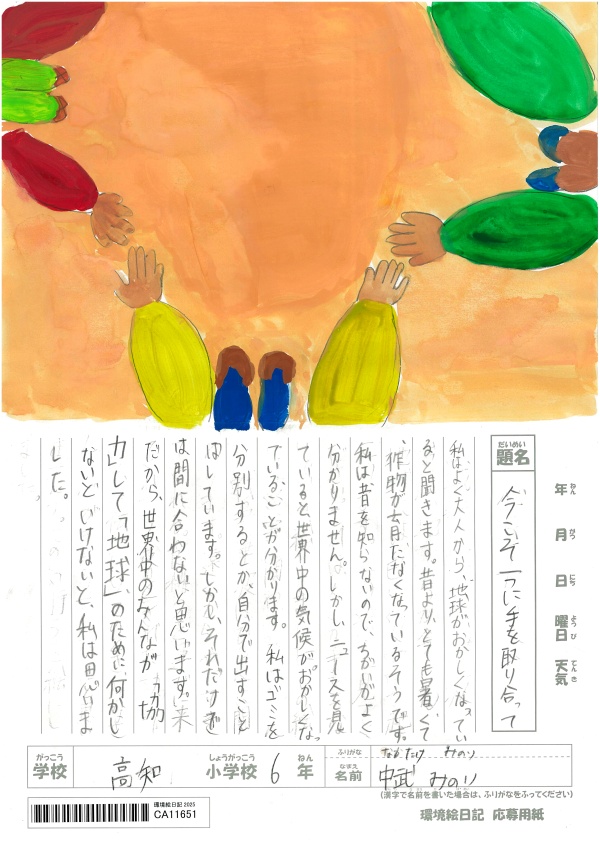 だいめい
題名
今こそ一つに手を取り合って
年 ねん
月 がつ
日 にち
曜日 ようび
天気 てんき
私はよく大人から、地球がおかしくなってい
ると聞きます。昔より、とても暑くて
、作物が育たなくなっているそうです。
私は昔を知らないので、ちがいがよく
分かりません。しかし、ニュースを見
ていると世界中の気候がおかしくなっ
ていることが分かります。私はゴミを
分別するとか、自分で出すこと
はしています。しかし、それだけで
は間に合わないと思います。未
だから、世界中のみんなが「協
力」して「地球」のために何かし
ないといけないと、私は思いま
した。
がっこう
学校
高知
しょうがっこう
小学校
6
ねん
年
ふりがな
なかたけ みのり
なまえ
名前
中武 みのり
(漢字で名前を書いた場合は、ふりがなをふってください)
環境絵日記 2025
CA11651
環境絵日記 応募用紙